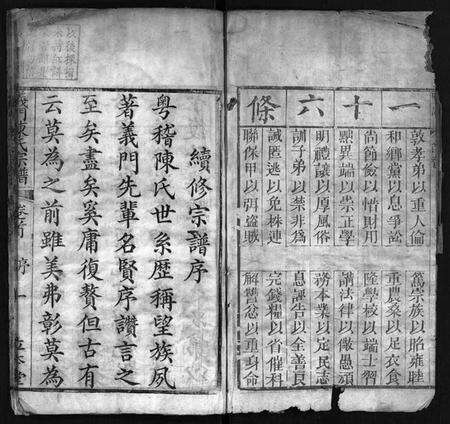 一十六條
敦孝弟以重人倫
篤宗族以昭雍睦
和鄉黨以息爭訟
重農桑以足衣食
尚節儉以惜財用
隆學校以端士習
黜異端以崇正學
講法律以儆愚頑
明禮讓以厚風俗
務本業以定民志
訓子弟以禁非為
息誣告以全善良
誡匿逃以免株連
完錢糧以省催科
聯保甲以弭盜賊
解讐忿以重身命
續修宗譜序
粵稽陳氏世系歷稱望族夙
著義門先輩名賢序讚言之
至矣盡矣奚庸復贅但古有
云莫為之前雖美弗彰莫為
義門陳氏宗譜
卷首
序
一